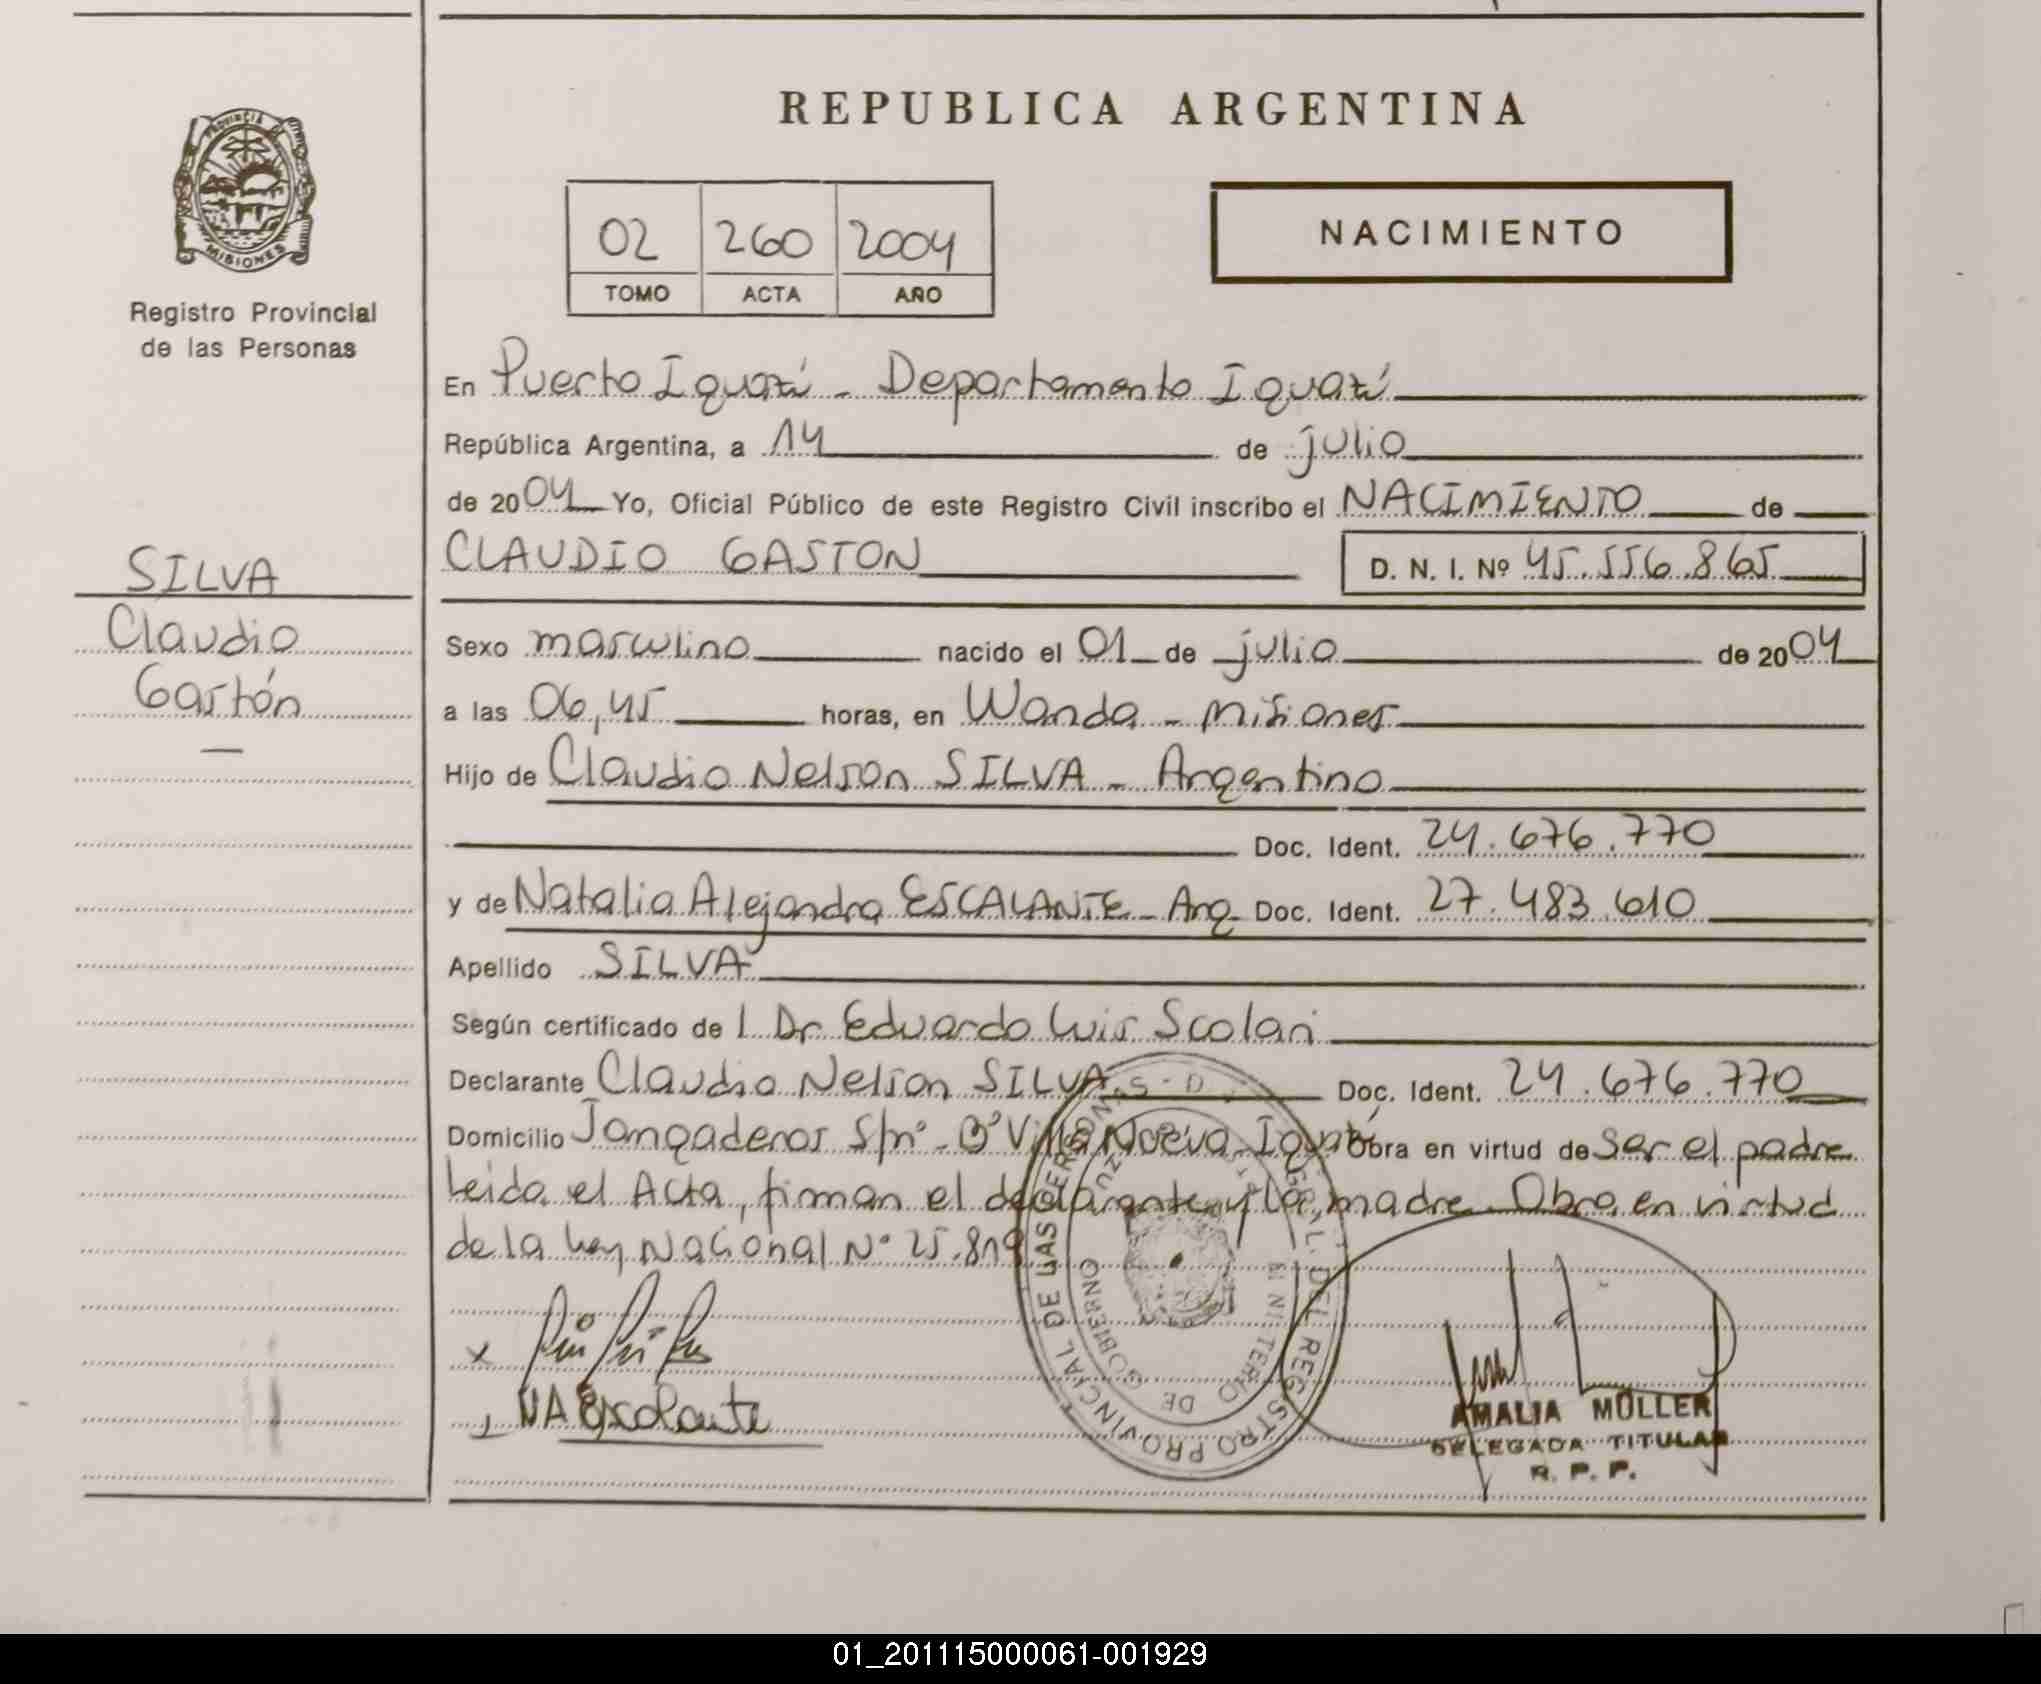 REPUBLICA ARGENTINA
PROVINCIA DE
MISIONES
Registro Provincial
de las Personas
02 260 2004
TOMO ACTA AÑO
NACIMIENTO
En Puerto Iguazú - Departamento Iguazú
República Argentina, a 14 de julio
de 2004 Yo, Oficial Público de este Registro Civil inscribo el NACIMIENTO de
CLAUDIO GASTON D. N. I. Nº 45.556.865
SILVA
Claudio
Gastón
Sexo masculino nacido el 01 de julio de 2004
a las 06,45 horas, en Wanda - Misiones
Hijo de Claudio Nelson SILVA - Argentino
Doc. Ident. 24.676.770
y de Natalia Alejandra ESCALANTE - Arg Doc. Ident. 27.483.610
Apellido SILVA
Según certificado de l Dr Eduardo Luis Scolari
Declarante Claudio Nelson SILVA Doc. Ident. 24.676.770
Domicilio Jangaderos S/nº - Bº Villa Nueva - Iguazú Obra en virtud de Ser el padre
Leida el Acta, firman el declarante y la madre. Obra en virtud
de la Ley Nacional Nº 25.819
DEL REGISTRO PROVINCIAL DE LAS PERSONAS
MINISTERIO DE GOBIERNO
x
NAEscalante
AMALIA MÜLLER
DELEGADA TITULAR
R. P. P.
01_201115000061-001929